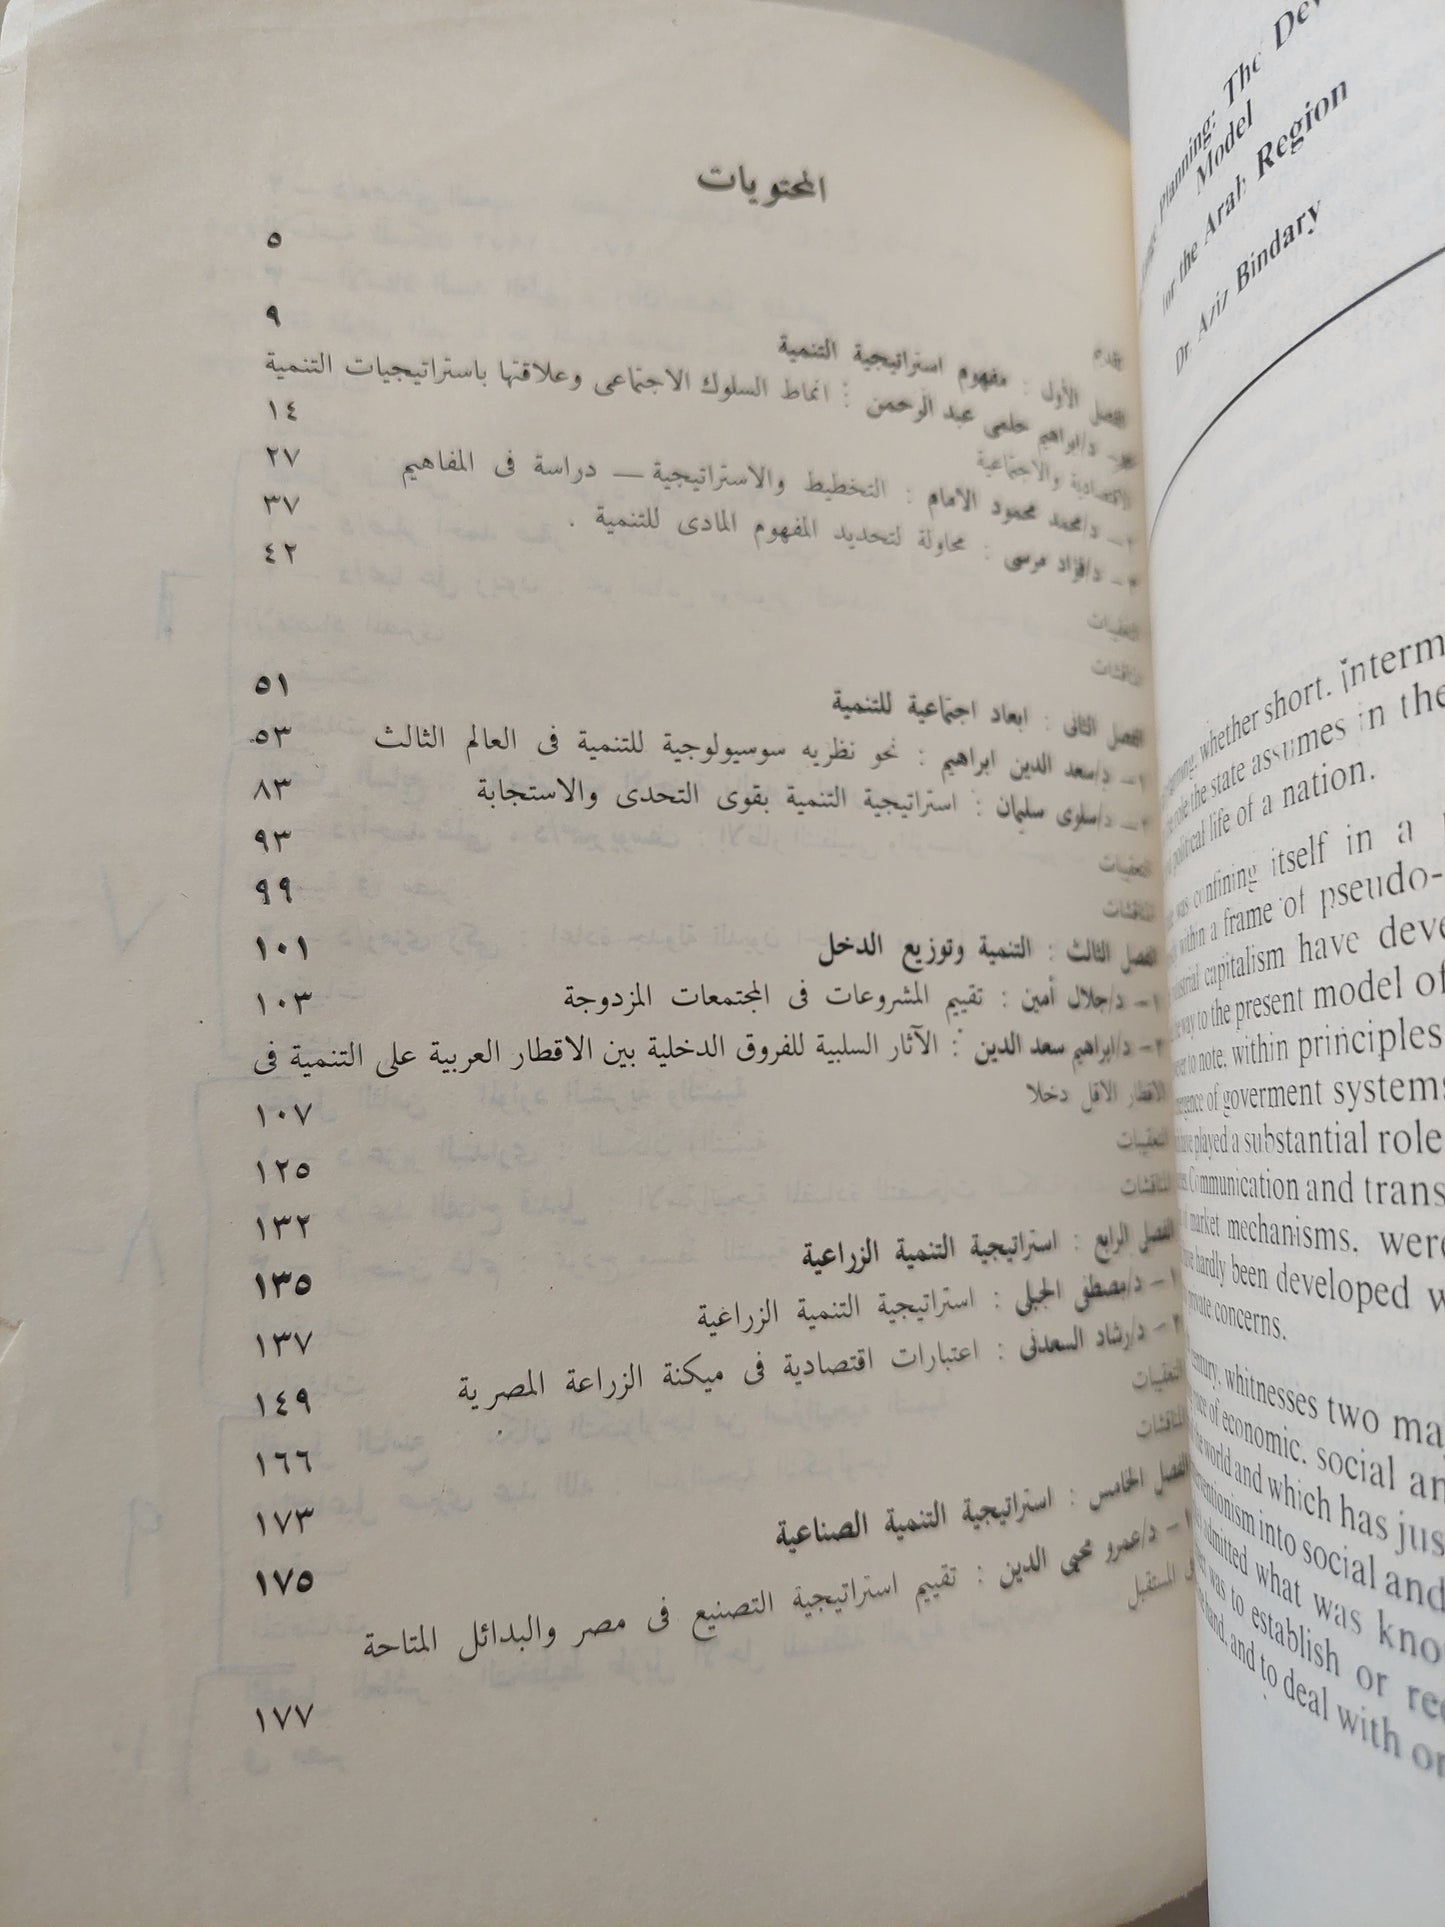 المحتويات
٥
الفصل الأول : مفهوم استراتيجية التنمية ٩
د/ابراهيم حلمى عبد الرحمن : انماط السلوك الاجتماعى وعلاقتها باستراتيجيات التنمية
الاقتصادية والاجتماعية ١٤
٢ — د/محمد محمود الامام : التخطيط والاستراتيجية — دراسة فى المفاهيم ٢٧
٣ — د/فؤاد مرسى : محاولة لتحديد المفهوم المادى للتنمية . ٣٧
التعقيبات ٤٢
المناقشات
الفصل الثانى : ابعاد اجتماعية للتنمية ٥١
١ — د/سعد الدين ابراهيم : نحو نظريه سوسيولوجية للتنمية فى العالم الثالث ٥٣
٢ — د/سلوى سليمان : استراتيجية التنمية بقوى التحدى والاستجابة ٨٣
التعقيبات ٩٣
المناقشات ٩٩
الفصل الثالث : التنمية وتوزيع الدخل ١٠١
١ — د/جلال أمين : تقييم المشروعات فى المجتمعات المزدوجة ١٠٣
٢ — د/ابراهيم سعد الدين : الآثار السلبية للفروق الدخلية بين الاقطار العربية على التنمية فى
الاقطار الاقل دخلا ١٠٧
التعقيبات ١٢٥
المناقشات ١٣٢
الفصل الرابع : استراتيجية التنمية الزراعية ١٣٥
١ — د/مصطفى الجبلى : استراتيجية التنمية الزراغية ١٣٧
٢ — د/رشاد السعدنى : اعتبارات اقتصادية فى ميكنة الزراعة المصرية ١٤٩
التعقيبات ١٦٦
المناقشات ١٧٣
الفصل الخامس : استراتيجية التنمية الصناعية ١٧٥
١ — د/عمرو محيى الدين : تقييم استراتيجية التصنيع فى مصر والبدائل المتاحة
فى المستقبل ١٧٧
Planning: The
Model
for the Arab Region
Dr. Aziz Bindary
whether short,
role the state assumes in the
political life of a nation.
was confining itself in a
within a frame of pseudo-
industrial capitalism have
way to the present model of
to note, within principles
of goverment systems
have played a substantial role
Communication and
market mechanisms, were
hardly been developed
private concerns.
century, whitnesses two
of economic, social
the world and which has
into social and
admitted what was
was to establish or
hand, and to deal with